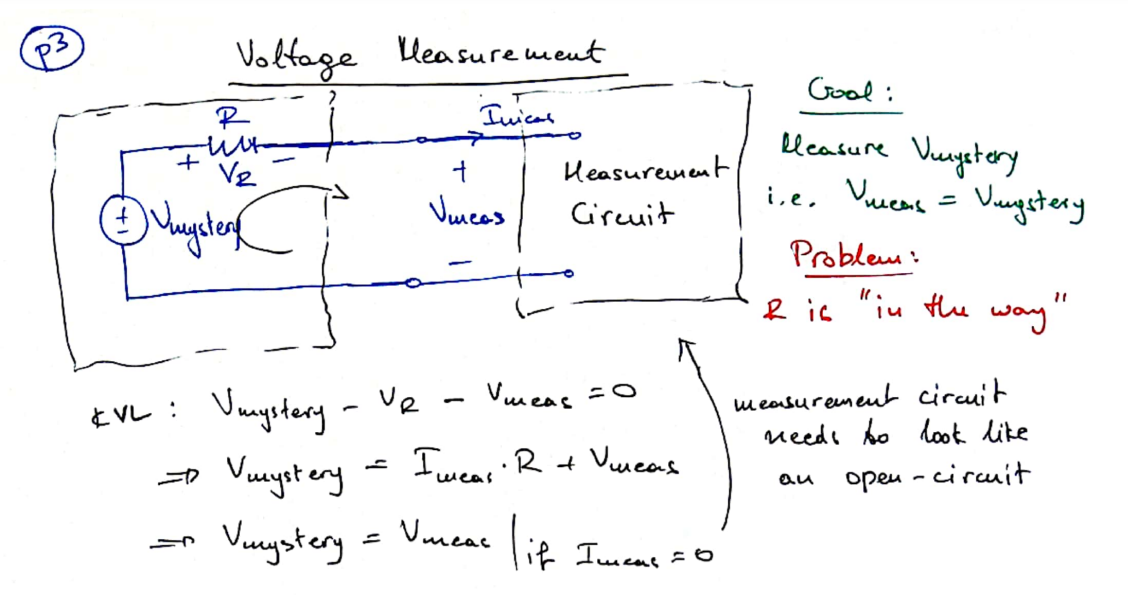 p3
Voltage Measurement
R
+ VR -
+
-
Vmystery
Imeas
+
Vmeas
-
Measurement
Circuit
Goal:
Measure Vmystery
i.e. Vmeas = Vmystery
Problem:
R is "in the way"
KVL: Vmystery - VR - Vmeas = 0
⇒ Vmystery = Imeas · R + Vmeas
⇒ Vmystery = Vmeas | if Imeas = 0
measurement circuit
needs to look like
an open-circuit